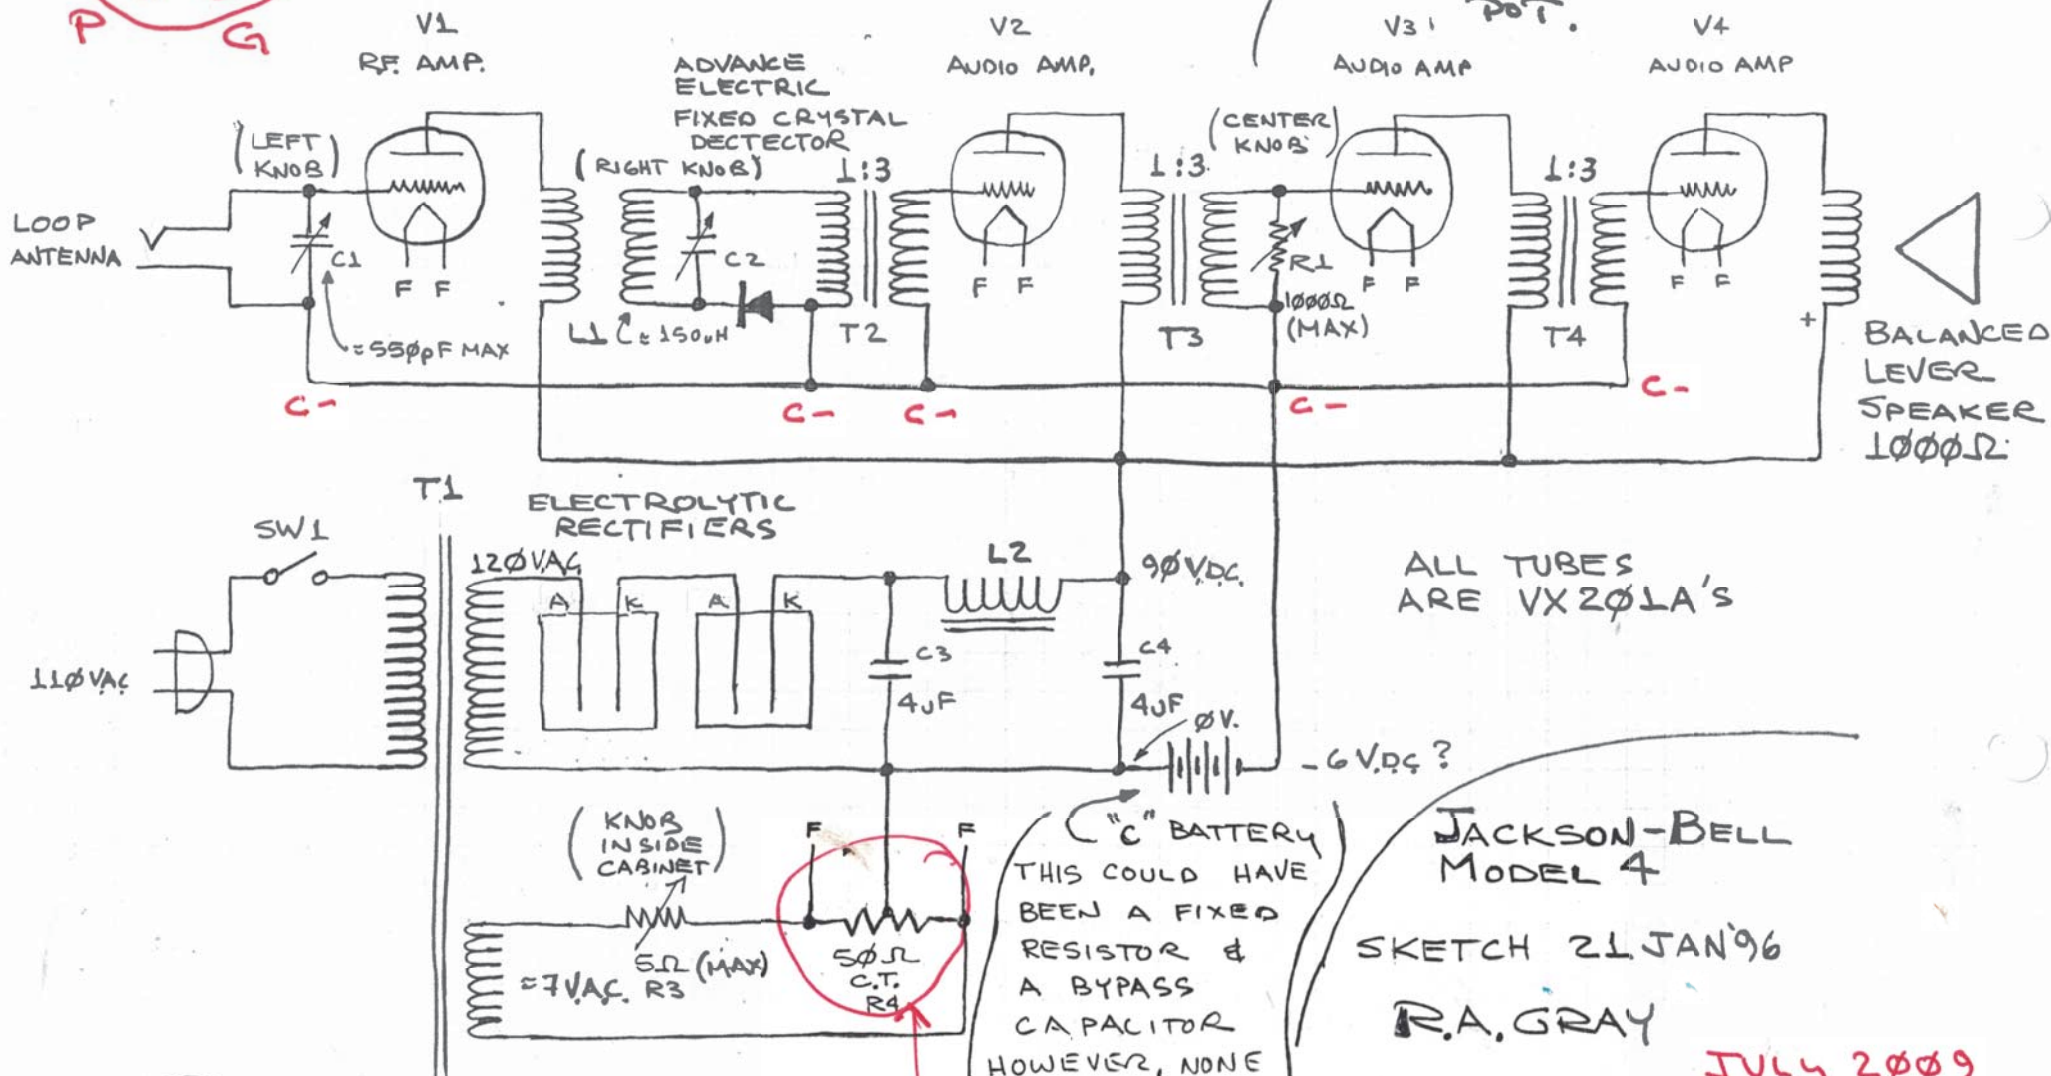 P
G
POT.
V1
RF. AMP.
ADVANCE
ELECTRIC
FIXED CRYSTAL
DECTECTOR
V2
AUDIO AMP.
V3
AUDIO AMP
V4
AUDIO AMP
(LEFT
KNOB)
(RIGHT KNOB)
1:3
1:3
(CENTER
KNOB)
1:3
LOOP
ANTENNA
C1
F F
C2
F F
R1
F F
F F
≈550pF MAX
L1 ≈150uH
T2
T3
1000Ω
(MAX)
T4
+
BALANCED
LEVER
SPEAKER
1000Ω
C-
C-
C-
C-
C-
T1
ELECTROLYTIC
RECTIFIERS
SW1
120VAC
A K
A K
L2
90V.DC.
ALL TUBES
ARE VX201A'S
110VAC
C3
4uF
C4
4uF
0V.
-6V.DC?
(KNOB
INSIDE
CABINET)
F
F
"C" BATTERY
THIS COULD HAVE
BEEN A FIXED
RESISTOR &
A BYPASS
CAPACITOR
HOWEVER, NONE
≈7V.AC.
5Ω (MAX)
R3
50Ω
C.T.
R4
JACKSON-BELL
MODEL 4
SKETCH 21 JAN'96
R.A. GRAY
JULY 2009